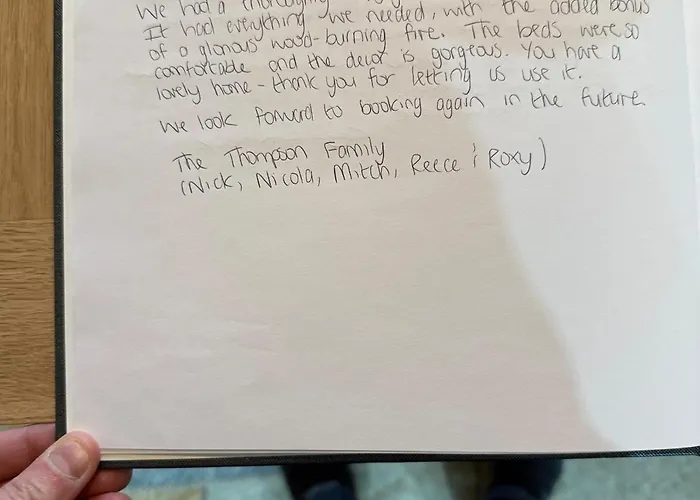 We had a thoroughly
It had everything we needed, with the added bonus
of a glorious wood-burning fire. The beds were so
comfortable and the decor is gorgeous. You have a
lovely home - thank you for letting us use it.
We look forward to booking again in the future.
The Thompson Family
(Nick, Nicola, Mitch, Reece & Roxy)